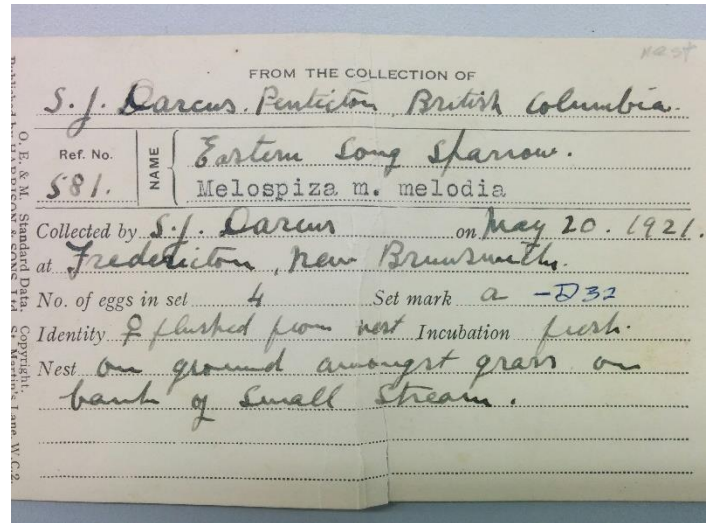 nest
FROM THE COLLECTION OF
S. J. Darcus. Penticton, British Columbia.
Ref. No. 581.
NAME
Eastern Song Sparrow.
Melospiza m. melodia
Collected by S. J. Darcus on May 20. 1921.
at Fredericton, New Brunswick.
No. of eggs in set 4 Set mark a -D32
Identity ♀ flushed from nest Incubation fresh.
Nest on ground amongst grass on
bank of small stream.
O. E. & M. Standard Data. Copyright.
SONS, Ltd. St. Martin's Lane, W.C.2